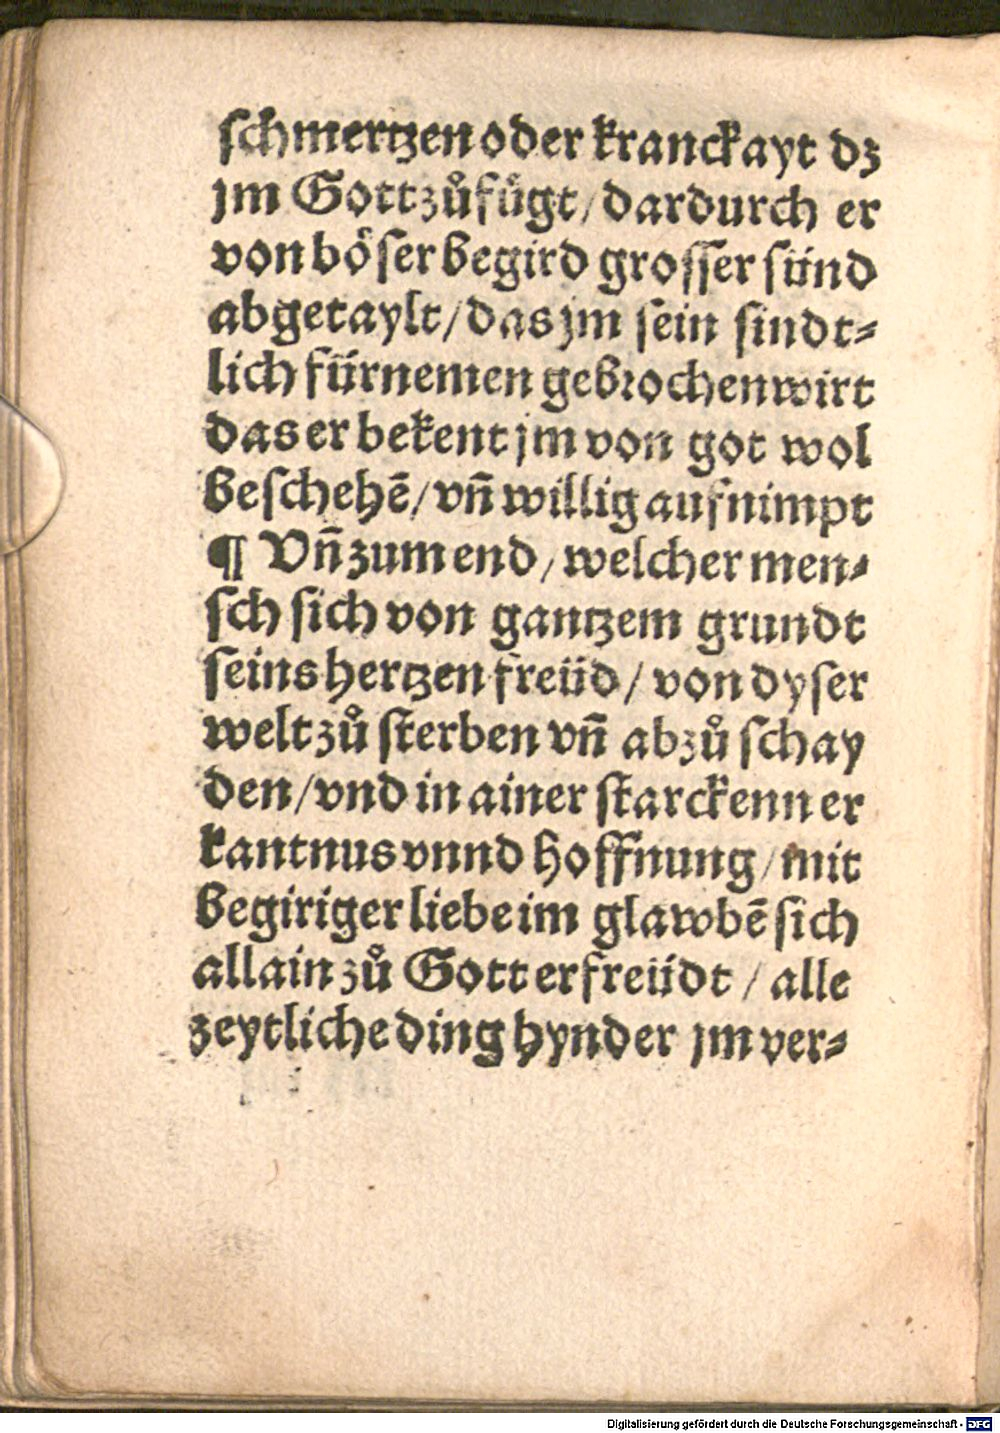 schmertzen oder kranckayt dz
jm Gott zůfůgt / dardurch er
von böser begird grosser sünd
abgetaylt / das jm sein sindt⸗
lich fürnemen gebrochen wirt
das er bekent jm von got wol
beschehẽ / vñ willig aufnimpt
¶ Vñ zum end / welcher men⸗
sch sich von gantzem grundt
seins hertzen freüd / von dyser
welt zů sterben vñ abzů schay
den / vnd in ainer starckenn er
kantnus vnnd hoffnung / mit
begiriger liebe im glawbẽ sich
allain zů Gott erfreüdt / alle
zeytliche ding hynder jm ver⸗
Digitalisierung gefördert durch die Deutsche Forschungsgemeinschaft - DFG